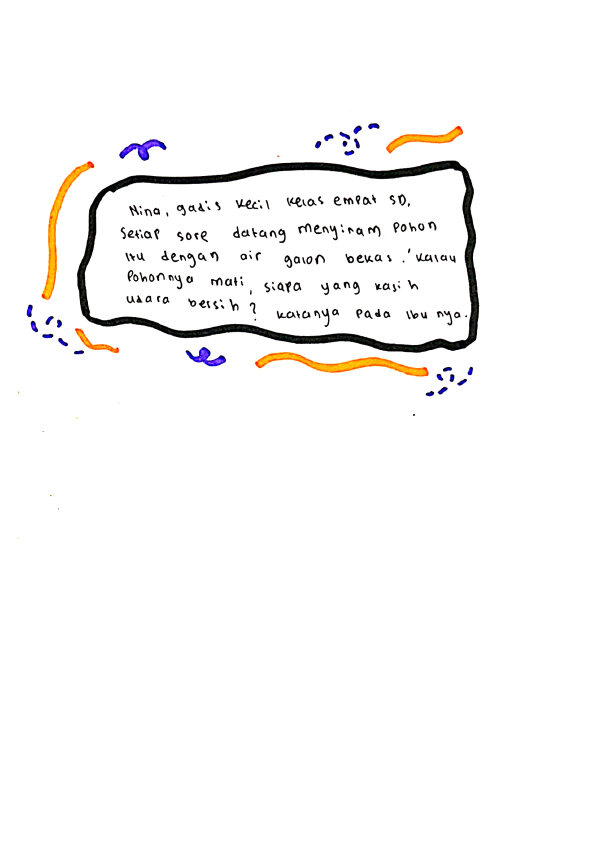 Nina, gadis kecil kelas empat SD,
setiap sore datang menyiram pohon
itu dengan air galon bekas. 'Kalau
pohonnya mati, siapa yang kasih
udara bersih? katanya pada ibu nya.